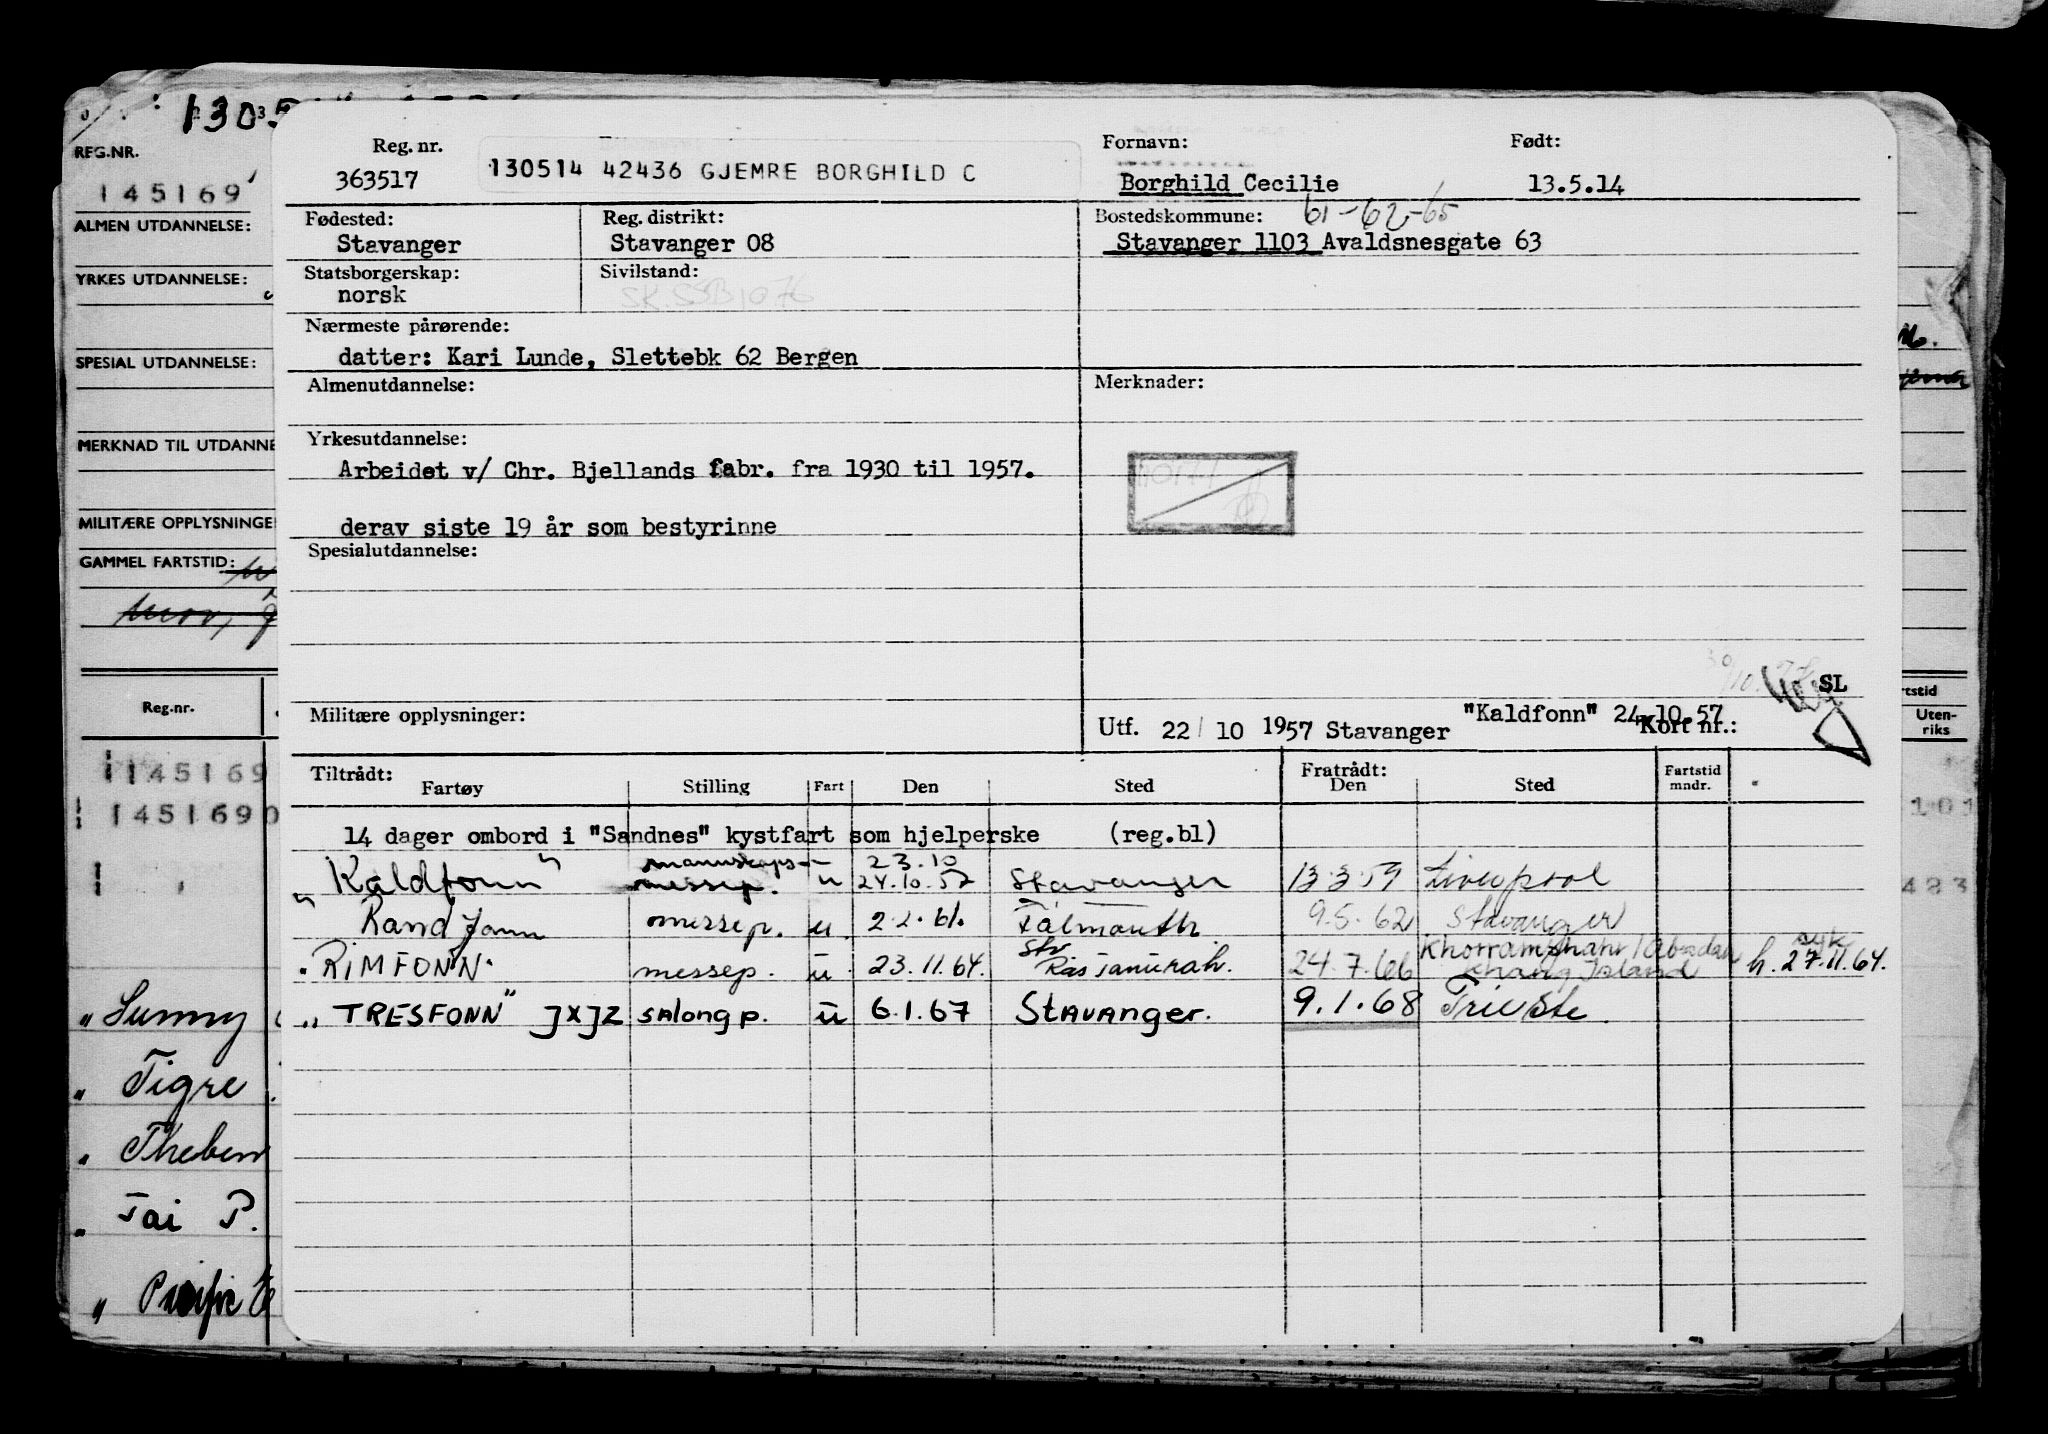 1305
REG.NR.
145169
ALMEN UTDANNELSE:
YRKES UTDANNELSE:
SPESIAL UTDANNELSE:
MERKNAD TIL UTDANNE
MILITÆRE OPPLYSNINGE
GAMMEL FARTSTID:
mor,
Reg.nr.
145169
1451690
" Sunny
" Tigre
" Theben
" Tai P.
" Pacific
Reg. nr.
363517
130514 42436 GJEMRE BORGHILD C
Fornavn:
Født:
Borghild Cecilie
13.5.14
Fødested:
Stavanger
Reg. distrikt:
Stavanger 08
Bostedskommune: 61-62-65
Stavanger 1103 Avaldsnesgate 63
Statsborgerskap:
norsk
Sivilstand:
SK.SSB 1076
Nærmeste pårørende:
datter: Kari Lunde, Slettebk 62 Bergen
Almenutdannelse:
Merknader:
Yrkesutdannelse:
Arbeidet v/ Chr. Bjellands fabr. fra 1930 til 1957.
derav siste 19 år som bestyrinne
Spesialutdannelse:
SL
Militære opplysninger:
"Kaldfonn" 24.10.57
Utf. 22/10 1957 Stavanger
Kort nr.:
Tiltrådt:
Fratrådt:
Fartøy Stilling Fart Den Sted Den Sted Fartstid mndr.
14 dager ombord i "Sandnes" kystfart som hjelperske (reg.bl)
mannskaps- 23.10
"Kaldfonn" messep. u 24.10.57 Stavanger 13.3.59 Liverpool
" Randfonn messep. u. 2.2.61. Falmouth 9.5.62 Stavanger
Stv Khorramshahr/Abadan syk
"RIMFONN" messep. u 23.11.64. Ras Tanurah. 24.7.66 Kharg Island h. 27.11.64.
"TRESFONN" JXJZ SALONG p. u 6.1.67 STAVANGER. 9.1.68 Trieste.
rtstid
Uten-
riks
101
423